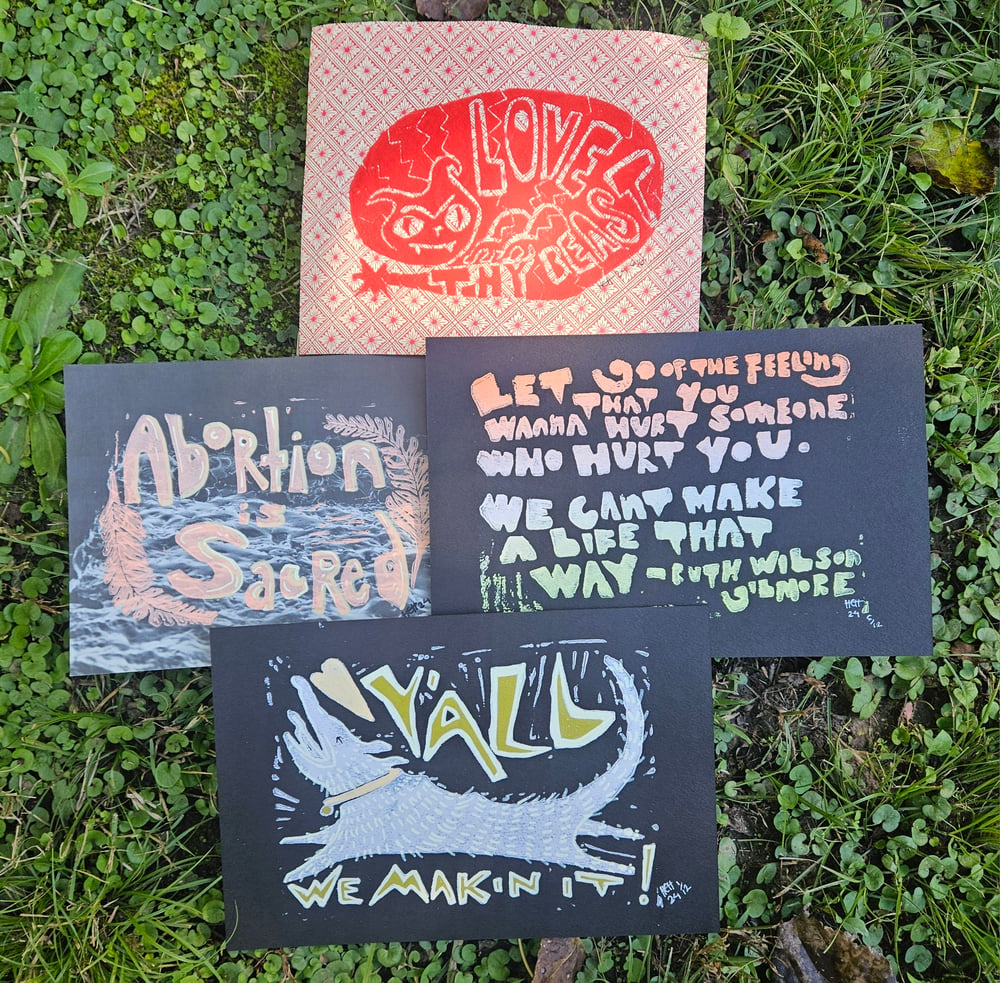 LOVE
THY BEAST
Abortion
is
Sacred
LET go OF THE FEELing
THAT YOU
WANNA HURT SOMEONE
WHO HURT YOU.
WE CANT MAKE
A LIFE THAT
WAY -RUTH WILSON
gILMORE
HGH
24
Y'ALL
WE MAKIN IT!
24